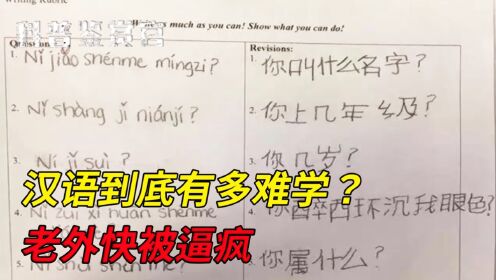 科普鉴赏官
Writing Rubric
as much as you can! Show what you can do!
Question
Revisions:
1. Nǐ jiào shénme míngzi?
1. 你叫什么名字?
2. Nǐ shàng jǐ niánjí?
2. 你上几年级?
3. Nǐ jǐ suì?
3. 你几岁?
汉语到底有多难学?
4. Nǐ zuì xǐ huān shénme
你醉西环沉我眼色?
老外快被逼疯
5. Nǐ shǔ shénme?
你属什么?